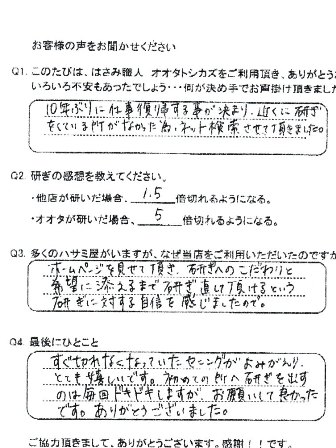 お客様の声をお聞かせください
Q1. このたびは、はさみ職人 オオタトシカズをご利用頂き、ありがとう
いろいろ不安もあったでしょう･･･何が決め手でお声掛け頂きまし
10年ぶりに仕事復帰する事が決まり、近くに研ぎ
をしている所がなかった為、ネット検索させて頂きました。
Q2. 研ぎの感想を教えてください。
・他店が研いだ場合、 1.5 倍切れるようになる。
・オオタが研いだ場合、 5 倍切れるようになる。
Q3. 多くのハサミ屋がいますが、なぜ当店をご利用いただいたのですか
ホームページを見せて頂き、研ぎへのこだわりと
希望に添えるまで研ぎ直して頂けるという
研ぎに対する自信を感じましたので。
Q4. 最後にひとこと
すぐ切れなくなっていたセニングがよみがえり、
とても嬉しいです。初めての所へ研ぎを出す
のは毎回ドキドキしますが、お願いして良かった
です。ありがとうございました。
ご協力頂きまして、ありがとうございます。感謝！！